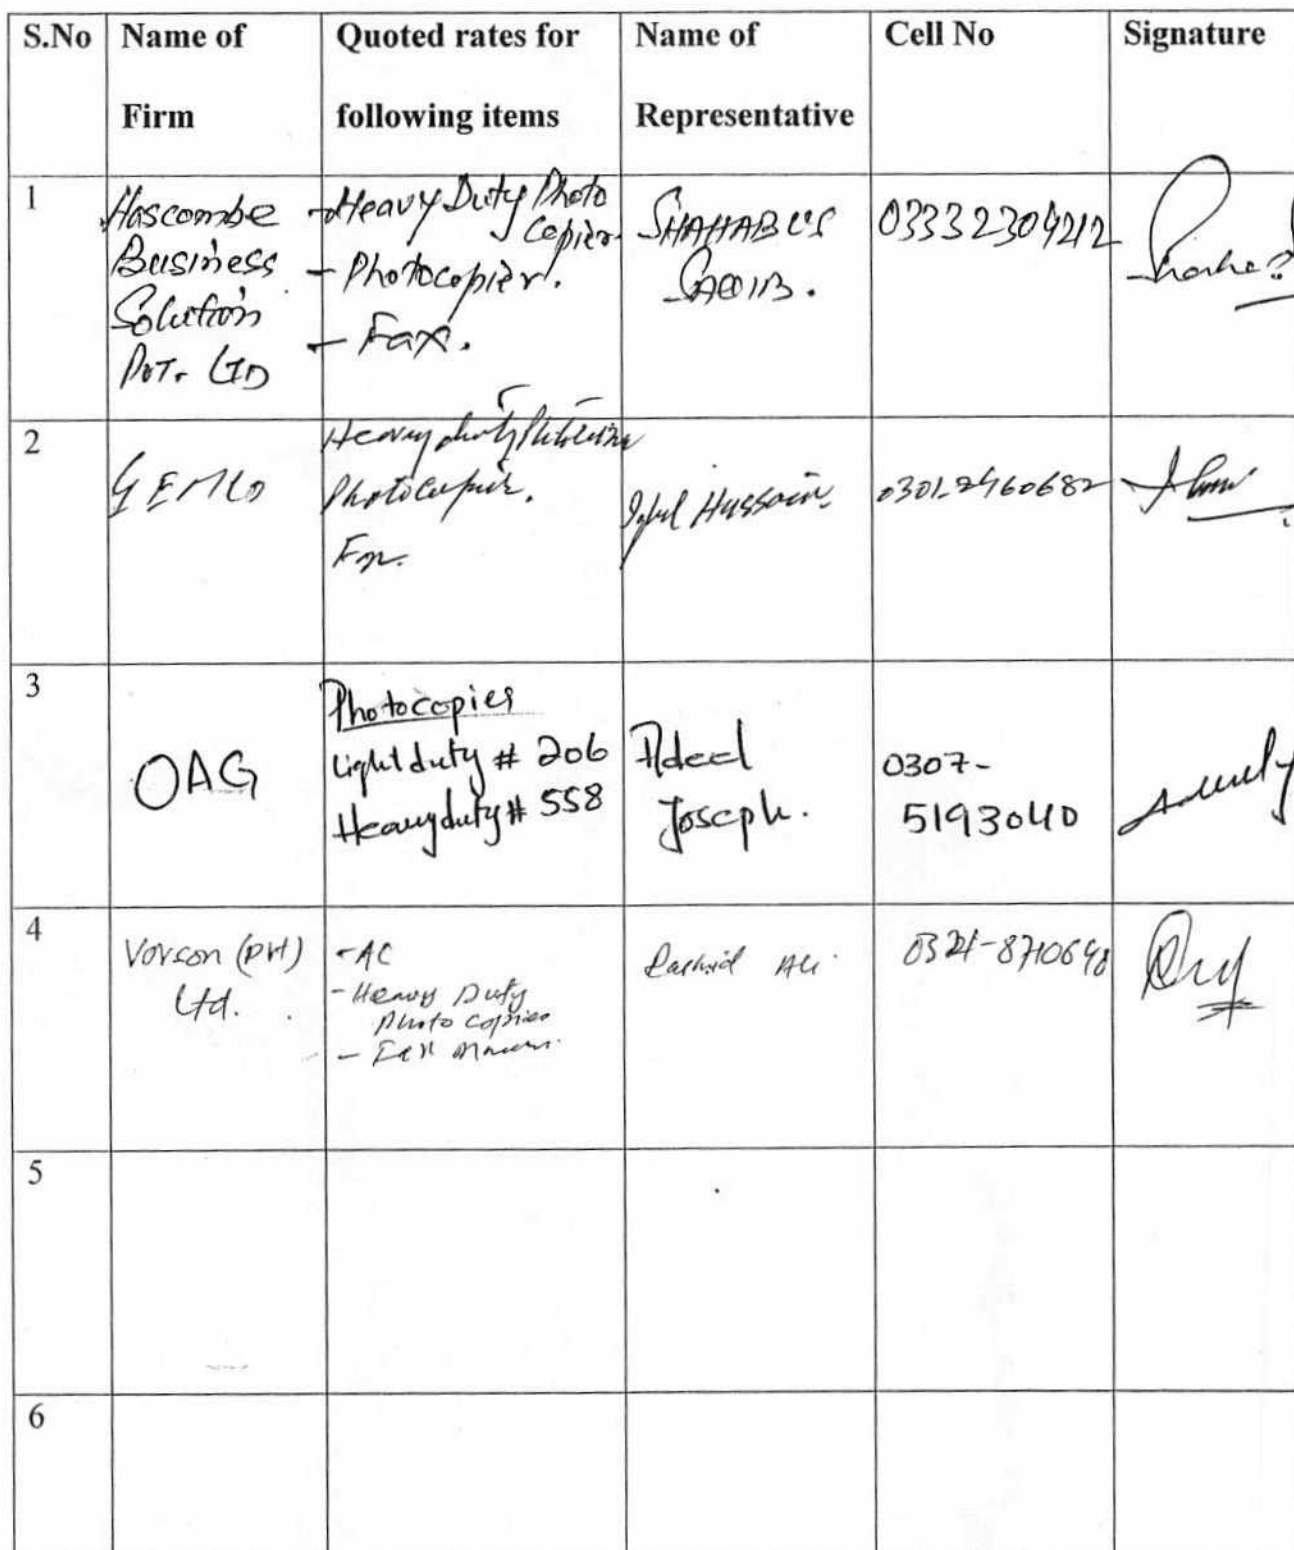 S.No Name of Firm Quoted rates for following items Name of Representative Cell No Signature
1
Hascombe
Business
Solution
Pvt. LTD
- Heavy Duty Photo
Copier.
- Photocopier.
- Fax.
SHAHAB US
SAQIB.
03332309212
2
GEMCO
Heavy duty
Photocopier.
Fax.
Iqbal Hussain
0301-2460682
3
OAG
Photocopier
Light duty # 206
Heavy duty # 558
Adeel
Joseph.
0307-
5193040
4
Vorson (pvt)
Ltd.
- AC
- Heavy Duty
Photo Copier
- Fax
Rashid Ali
0321-8710698
5
6